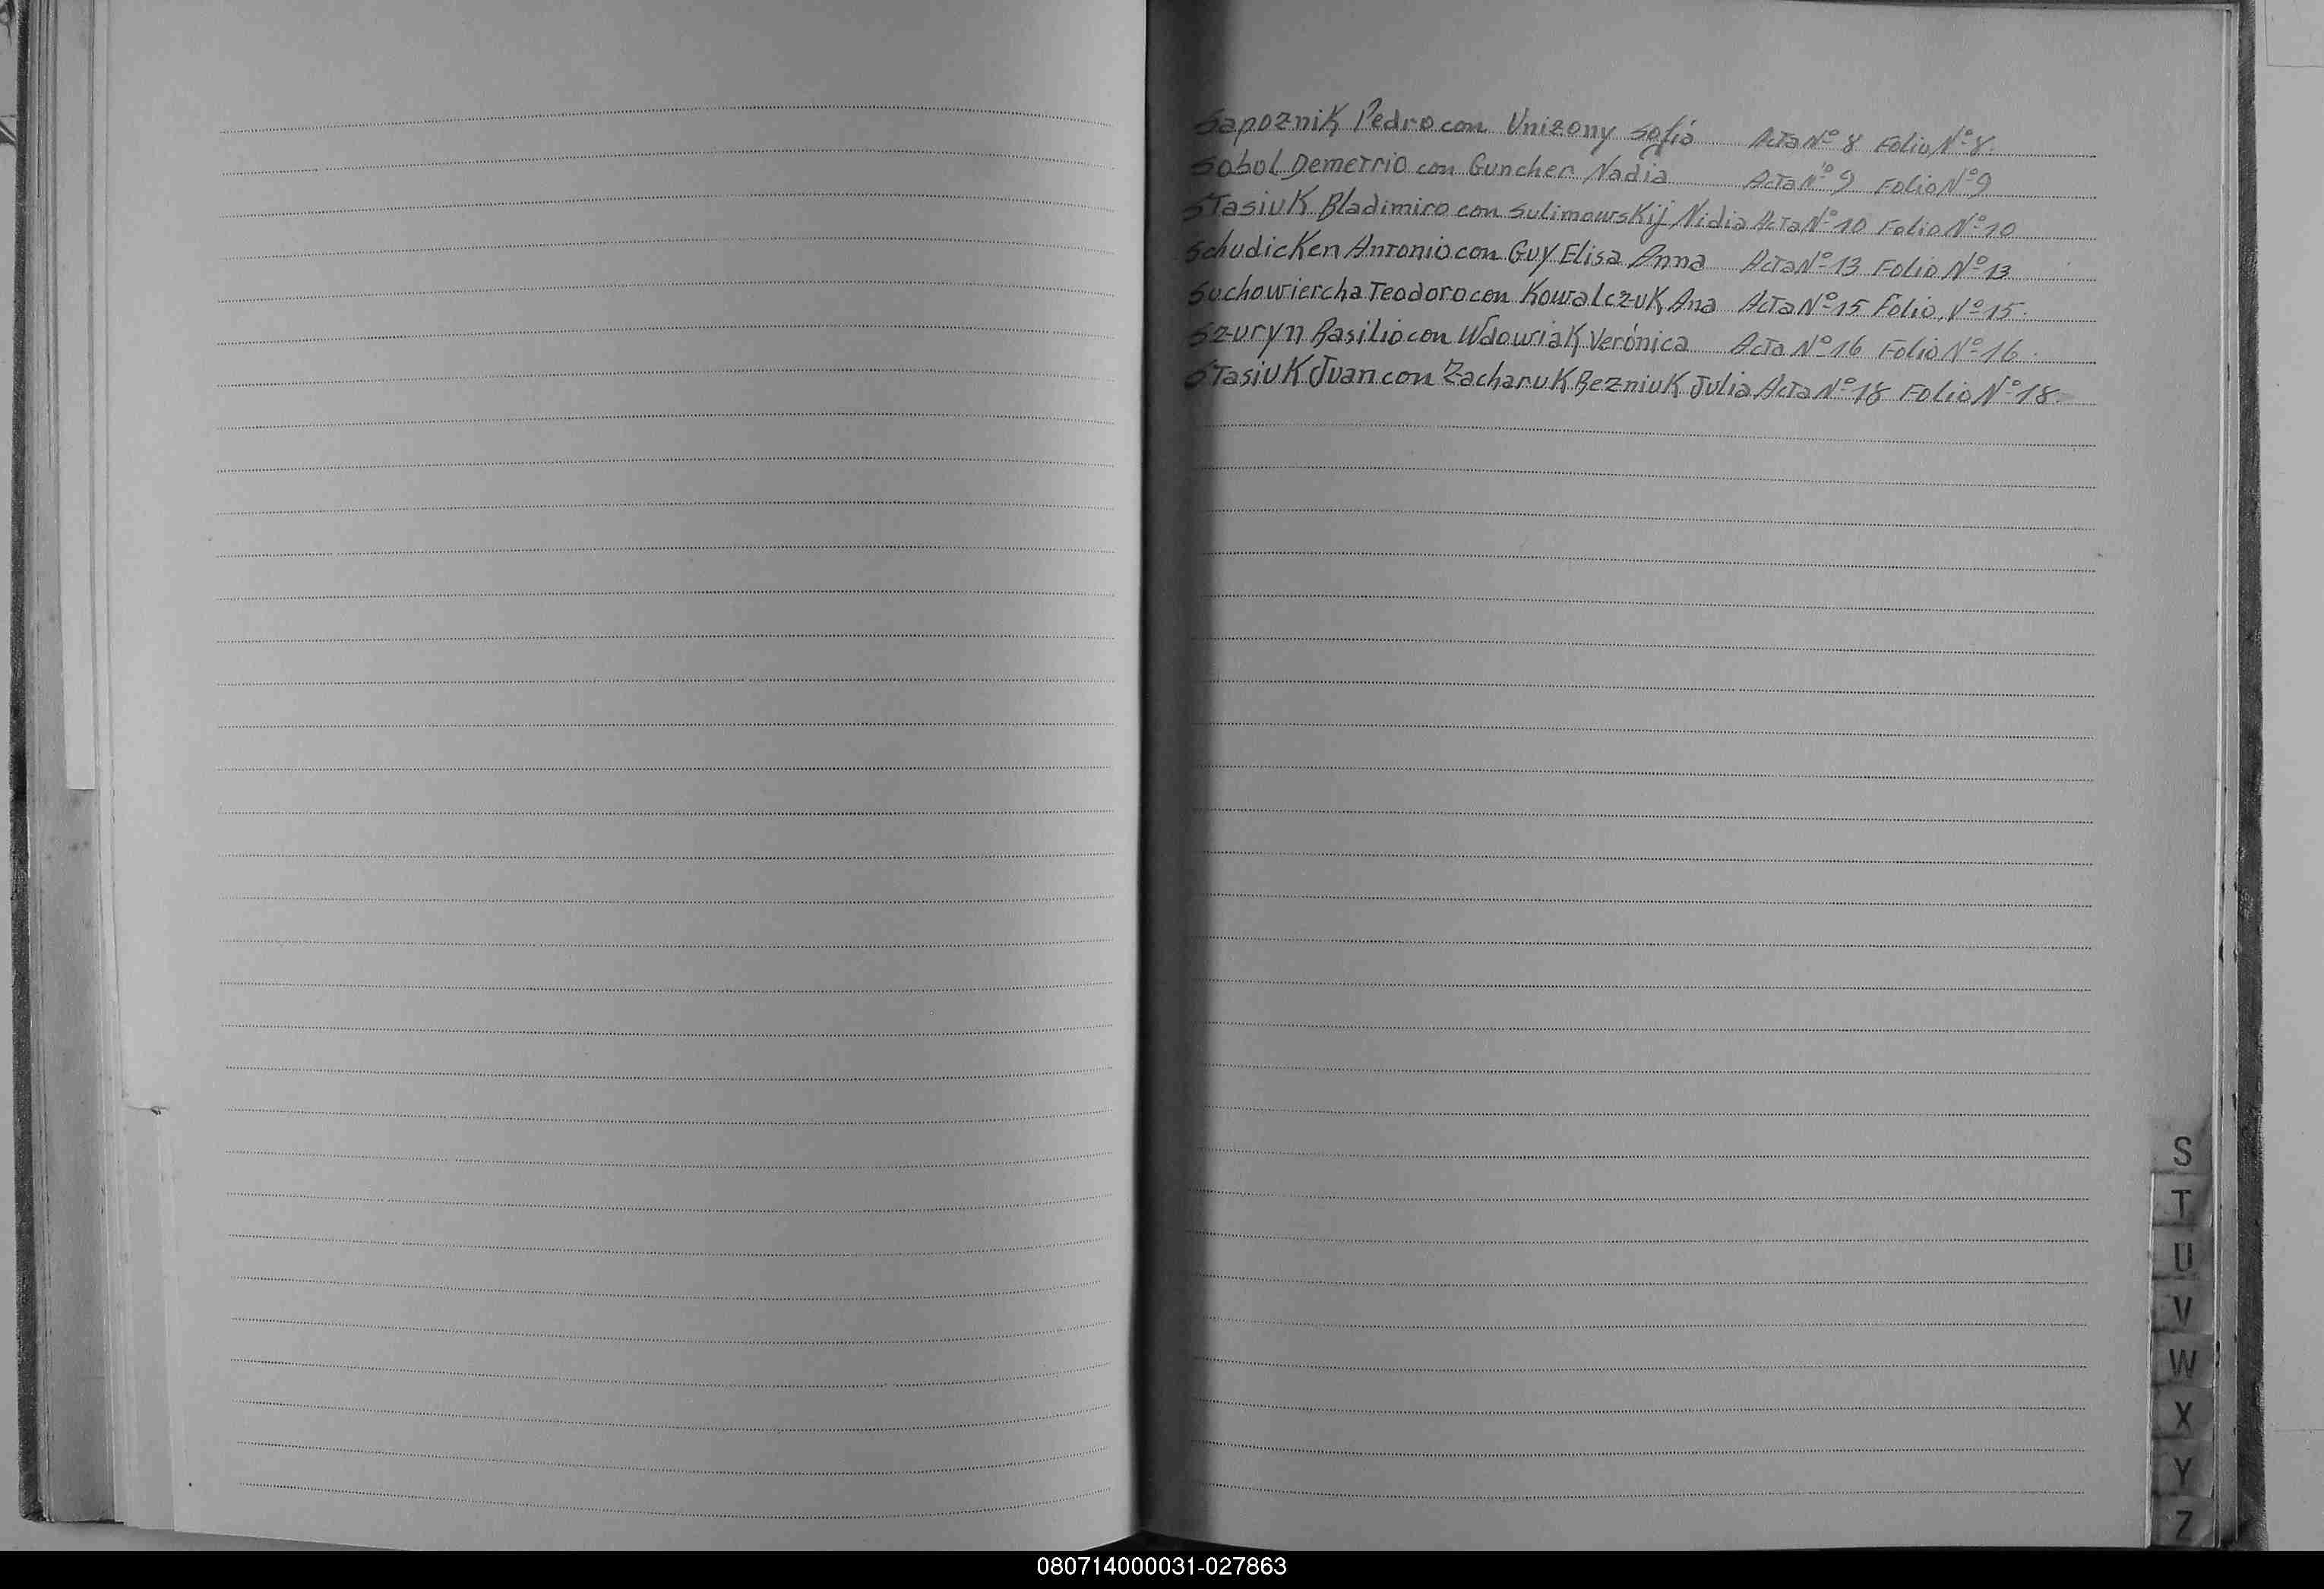 Sapoznik Pedro con Unizony Sofía Acta Nº 8 Folio Nº 8.
Sobol Demetrio con Guncher Nadia Acta Nº 9 Folio Nº 9
Stasiuk Bladimiro con Sulimowskij Nidia Acta Nº 10 Folio Nº 10
Schudicken Antonio con Guy Elisa Anna Acta Nº 13 Folio Nº 13
Suchowiercha Teodoro con Kowalczuk Ana Acta Nº 15 Folio Nº 15.
Szuryn Basilio con Wdowiak Verónica Acta Nº 16 Folio Nº 16.
Stasiuk Juan con Zacharuk Bezniuk Julia Acta Nº 18 Folio Nº 18.
S
T
U
V
W
X
Y
Z
080714000031-027863